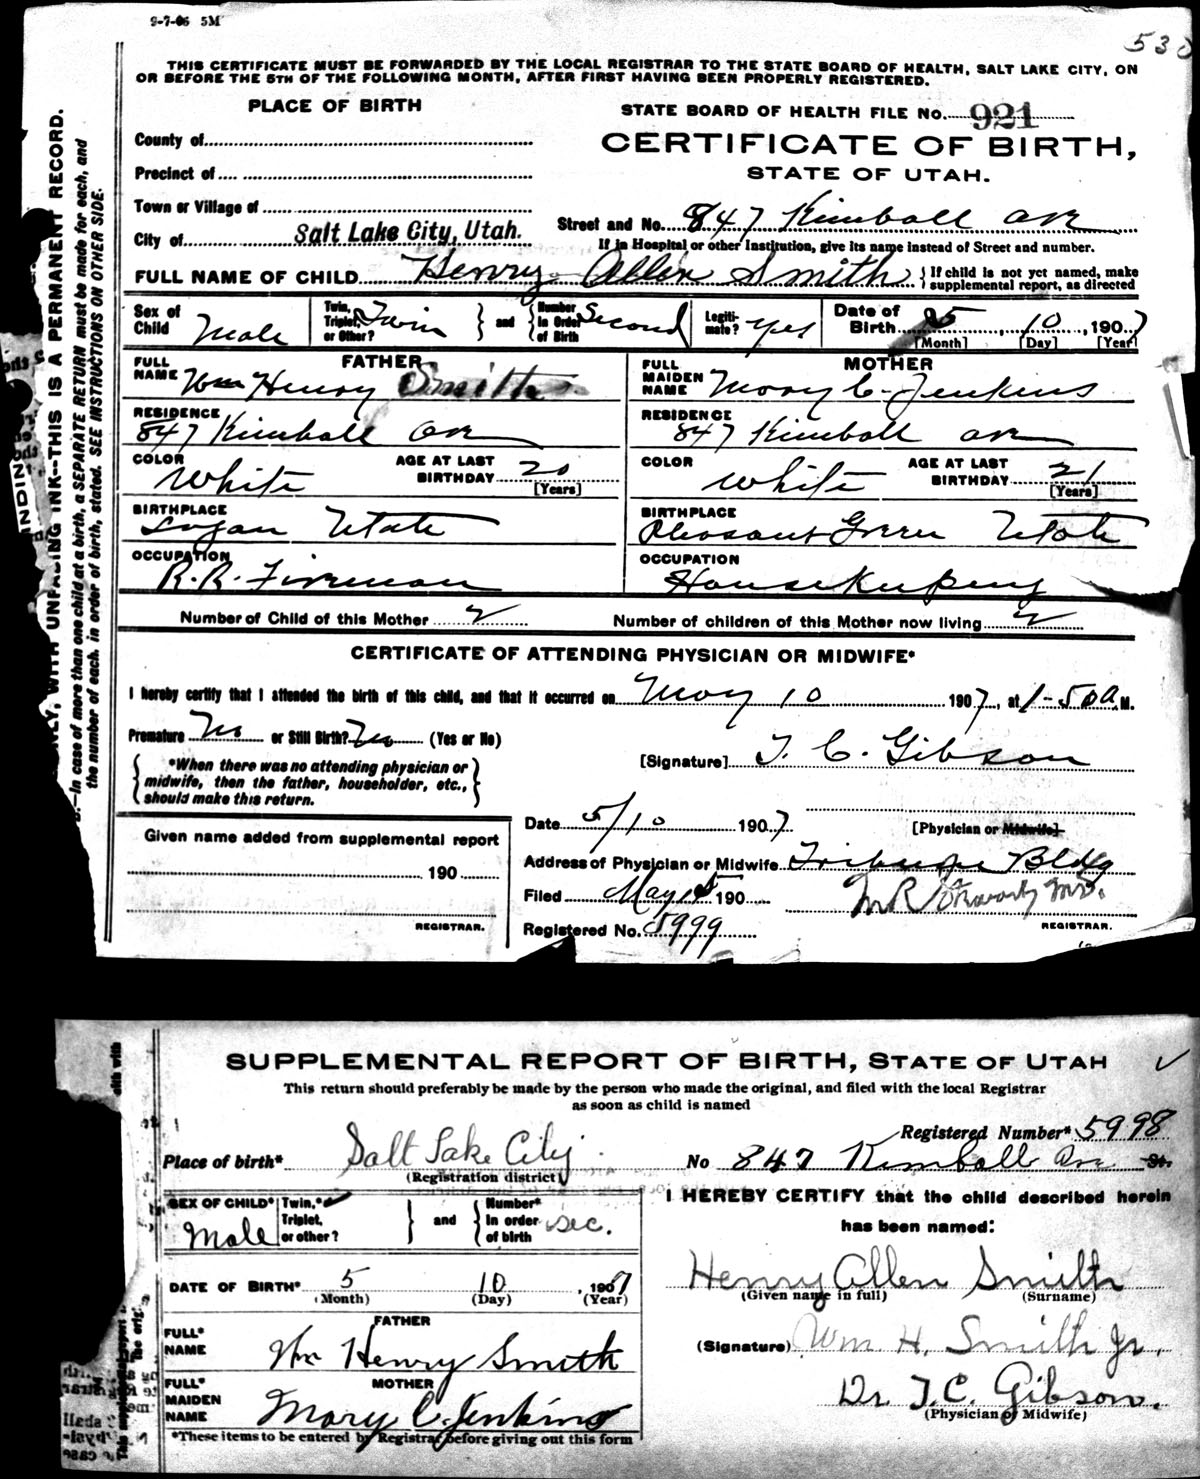 9-7-06 5M
530
THIS CERTIFICATE MUST BE FORWARDED BY THE LOCAL REGISTRAR TO THE STATE BOARD OF HEALTH, SALT LAKE CITY, ON
OR BEFORE THE 5TH OF THE FOLLOWING MONTH, AFTER FIRST HAVING BEEN PROPERLY REGISTERED.
PLACE OF BIRTH
STATE BOARD OF HEALTH FILE NO. 921
County of
CERTIFICATE OF BIRTH,
Precinct of
STATE OF UTAH.
Town or Village of
Street and No. 847 Kimball ave
City of Salt Lake City, Utah.
If in Hospital or other Institution, give its name instead of Street and number.
FULL NAME OF CHILD Henry Allen Smith { If child is not yet named, make
supplemental report, as directed
Sex of Child Male
Twin, Triplet, or Other? Twin } and { Number in Order of Birth Second
Legiti-mate? Yes
Date of Birth 5, 10, 1907
[Month] [Day] [Year]
FATHER
FULL NAME Wm Henry Smith
MOTHER
FULL MAIDEN NAME Mary C. Jenkins
RESIDENCE 847 Kimball ave
RESIDENCE 847 Kimball ave
COLOR White AGE AT LAST BIRTHDAY 20 [Years]
COLOR White AGE AT LAST BIRTHDAY 21 [Years]
BIRTHPLACE Logan Utah
BIRTHPLACE Pleasant Green Utah
OCCUPATION R.R. Fireman
OCCUPATION Housekeeping
Number of Child of this Mother 2 Number of children of this Mother now living 2
CERTIFICATE OF ATTENDING PHYSICIAN OR MIDWIFE*
I hereby certify that I attended the birth of this child, and that it occurred on May 10 1907, at 1-50 a.M.
Premature No or Still Birth? No (Yes or No)
[Signature] T. C. Gibson
{ *When there was no attending physician or
midwife, then the father, householder, etc.,
should make this return. }
Date 5/10 1907
[Physician or Midwife]
Given name added from supplemental report
190
REGISTRAR.
Address of Physician or Midwife Tribune Bldg
Filed May 15 190 M R Stewart M.D.
REGISTRAR.
Registered No. 5999
ONLY, WITH UNFADING INK--THIS IS A PERMANENT RECORD.
B.—In case of more than one child at a birth, a SEPARATE RETURN must be made for each, and
the number of each, in order of birth, stated. SEE INSTRUCTIONS ON OTHER SIDE.
SUPPLEMENTAL REPORT OF BIRTH, STATE OF UTAH
This return should preferably be made by the person who made the original, and filed with the local Registrar
as soon as child is named
Registered Number* 5998
Place of birth* Salt Lake City No 847 Kimball Ave St.
(Registration district)
SEX OF CHILD* Male
Twin,* Triplet, or other? } and { Number* in order of birth sec.
I HEREBY CERTIFY that the child described herein
has been named:
DATE OF BIRTH* 5 10, 1907
(Month) (Day) (Year)
Henry Allen Smith
(Given name in full) (Surname)
FATHER
FULL* NAME Wm Henry Smith
(Signature) Wm H. Smith Jr.
MOTHER
FULL* MAIDEN NAME Mary C. Jenkins
Dr T.C. Gibson.
(Physician or Midwife)
*These items to be entered by Registrar before giving out this form